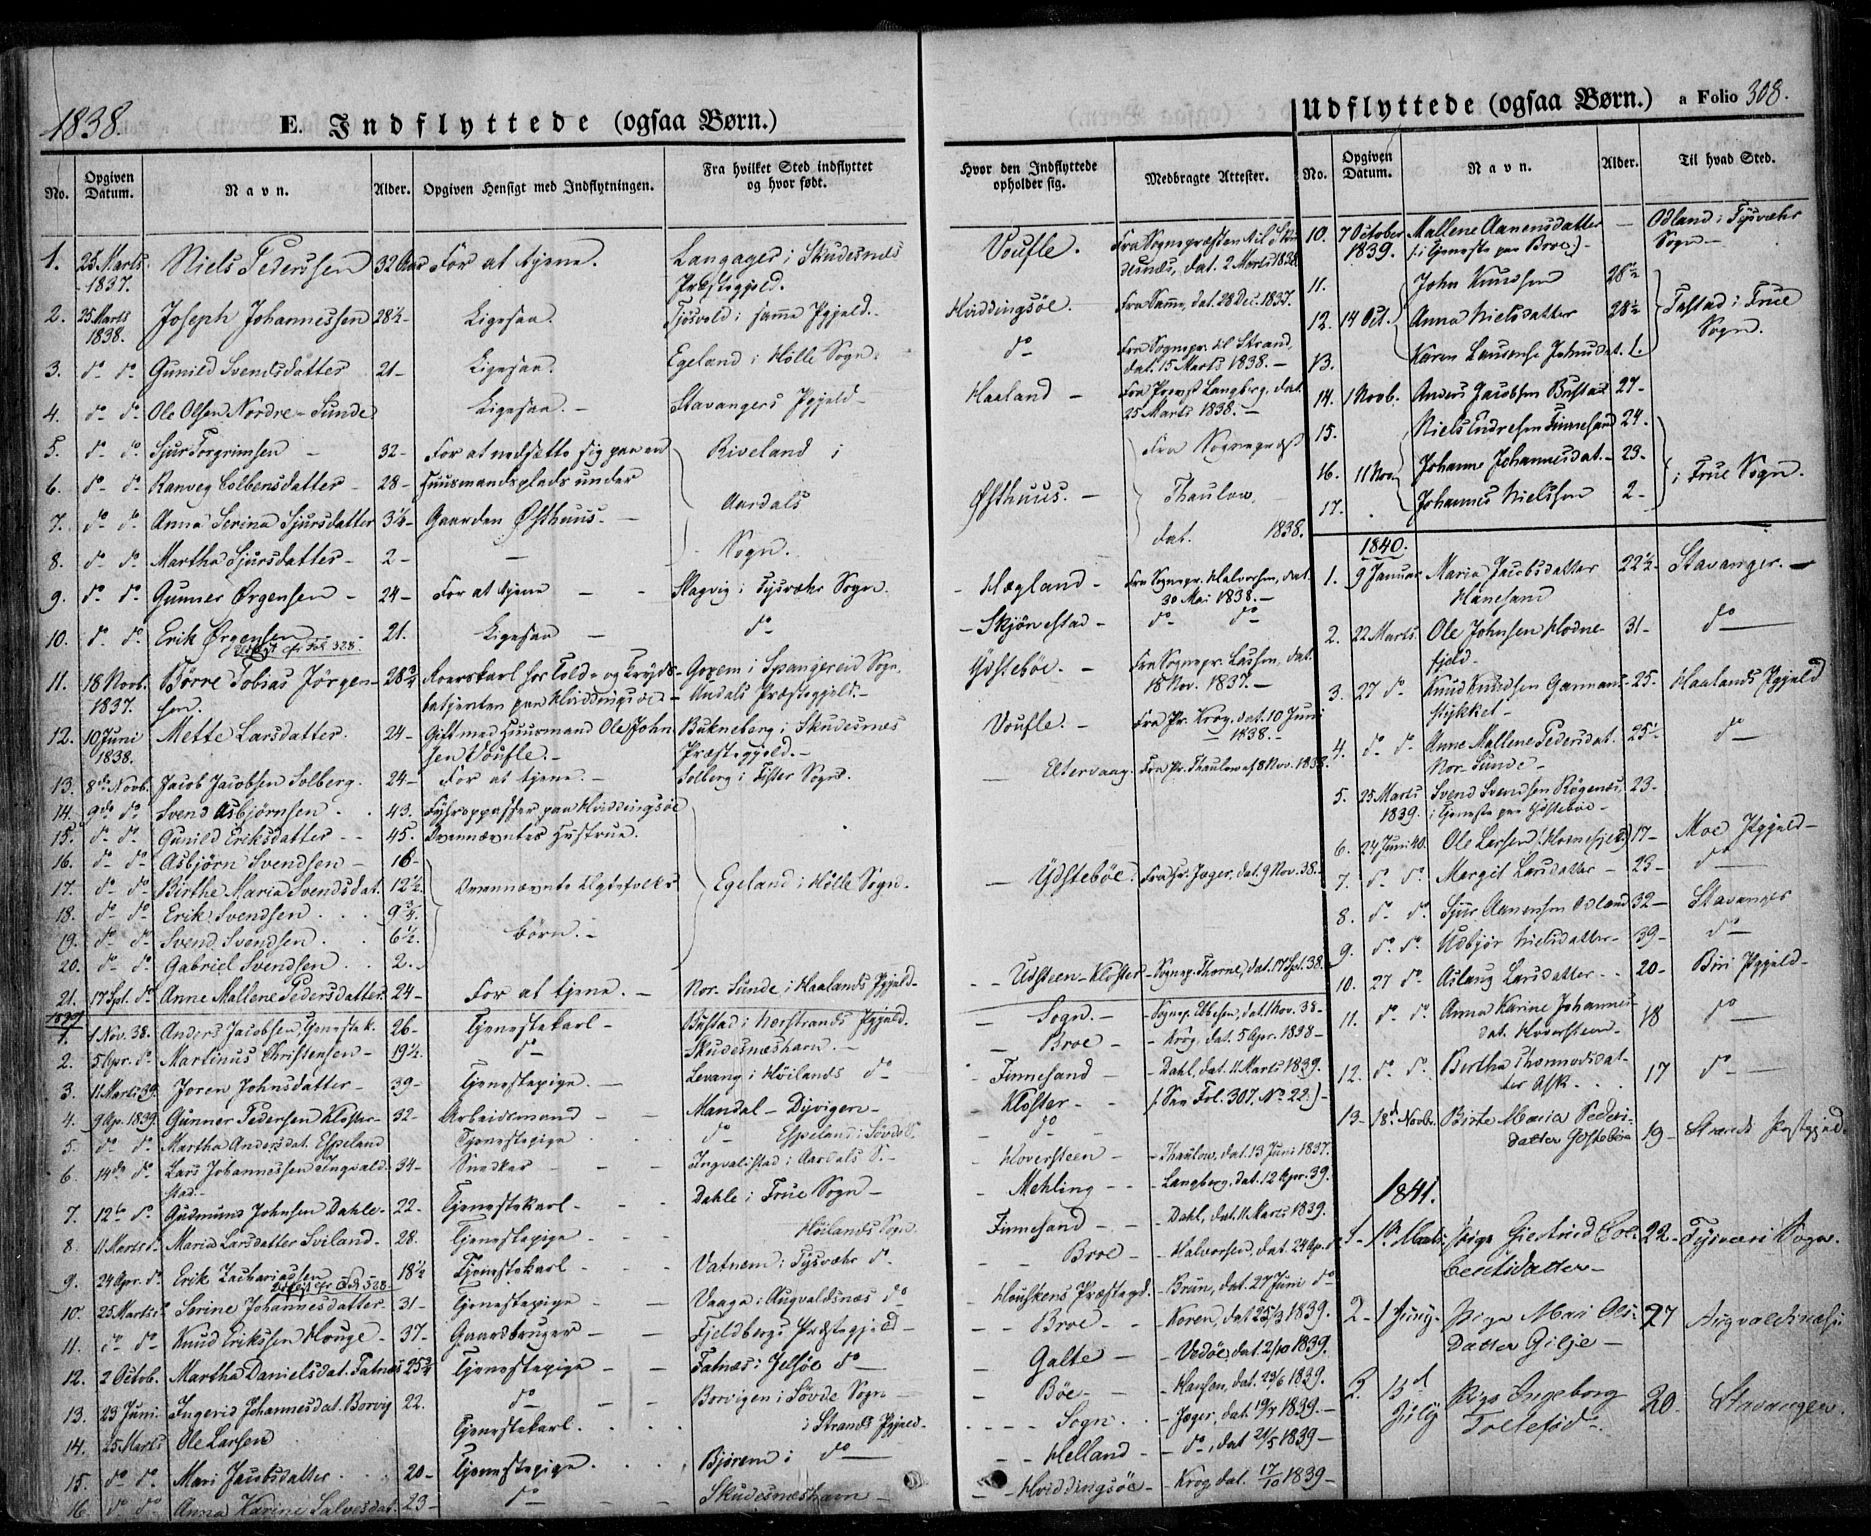 1838.
E. Indflyttede (ogsaa Børn.)
No. Opgiven Datum. Navn. Alder. Opgiven Hensigt med Indflytningen. Fra hvilket Sted indflyttet og hvor født. Hvor den Indflyttede opholder sig. Medbragte Attester.
1. 25 Marts 1837. Niels Pederssen 32 Aar For at tjene. Langager i Skudesnæs Præstegjeld. Voufle. Fra Sognepræsten til Skudesnæs, dat. 2 Marts 1838.
2. 25 Marts 1838. Joseph Johannessen 28½ Ligesaa. Tjøsvold i samme Pgjeld. Hviddingsøe. Fra Samme, dat. 28 Dec. 1837.
3. do do Gunild Svendsdatter 21- Ligesaa. Egeland i Hölle Sogn. do Fra Sognepr. til Strand, dat. 15 Marts 1838.-
4. do do Ole Olsen Nordre-Sunde Ligesaa.- Stavangers Pgjeld- Haaland- Fra Provst Langberg, dat. 25 Marts 1838.-
5. do do Sjur Torgrimsen - 32- For at nedsætte sig paa en Riveland i Fra Sognepræst
6. do do Ranveg Colbensdatter- 28- Huusmandsplads under Aardals Østhuus.- Thaulow
7. do do Anna Serina Sjursdatter 3½- Gaarden Østhuus.- Sogn. dat. 1838.
8. do do Martha Sjursdatter- 2- -
9. do do Gunner Ørgensen- 24- For at tjene - - Slagvig i Tysvæhr Sogn. - Hægland- Fra Sognepr. Halvorsen, dat. 30 Mai 1838.-
10. do do Erik Ørgensen 21. Ligesaa - do - Skjørnestad- do do
cfr. Fol. 328.
11. 18 Novb. 1837. Børre Tobias Jörgensen. 28¾ Roerskarl hos Told- og Krydsbetjenten paa Hviddingsøe- i Spangereid Sogn. Audals Præstegjeld.- Ydstebøe.- Fra Sognepr. Lassen, dat. 18 Nov. 1837.-
12. 10 Juni 1838. Mette Larsdatter. 24- Gift med Huusmand Ole Johnsen Voufle.- Bukneberg i Skudesnæs Præstegjeld.- Voufle.- Fra Pr. Krog, dat. 10 Juni 1838.-
13. 8de Novb. Jacob Jacobsen Solberg. 24- For at tjene.- Solberg i Fister Sogn. - Eltervaag. Fra Pr. Thaulow af 8 Nov. 1838.
14. 9de do Svend Asbjörnsen. 43. Fyhroppasser paa Hviddingsöe
15. do do Gunild Eriksdatter- - 45. Ovennævntes Hustrue.
16. do do Asbjörn Svendsen- 16-
17. do do Birthe Maria Svendsdat. 12½. Ovennævnte Ægtefolks Egeland i Hölle Sogn. - Ydstebøe. Fra Pr. Jæger, dat. 9 Nov. 38.
18. do do Erik Svendsen... 9¾.
19. do do Svend Svendsen. 6½. børn.-
20. do do Gabriel Svendsen.. 2.
21. 17 Spt. do Anne Mallene Pedersdatter 24- For at tjene.- Nor-Sunde i Haalands Pgjeld.- - - Udsteen-Kloster- Sognep. Thorne, dat. 17 Spt. 38.
1839
1. 1 Nov. 38. Anders Jacobsen, Tjenestek. 26- Tjenestekarl- Bustad i Norstrands Pgjeld. - Sogn.- - Sognep. Ebesen, dat. 1 Nov. 38-
2. 5 Apr. do Martinus Christensen- 19½. do- Skudesnæshavn.- - Broe- - Krog, dat. 5 Apr. 1838-
3. 11 Marts 39. Joren Johnsdatter- 39- Tjenestepige.- Levang i Höilands do- - Finnesand- - Dahl, dat. 11 Marts 1839.
4. 9 Apr. 1839. Gunner Pedersen Kloster- 32- Arbeidsmand- Mandal- Dyvigen- - Kloster- - (See Fol. 307. No. 22.)-
5. do do Martha Andersdat. Espeland Tjenestepige. do Espeland i Søvde S. - do -
6. 14de do Lars Johannessen Ingvaldstad- 34- Snedker- Ingvalstad i Aardals S.- - Hoversteen- - Thaulow, dat. 13 Juni 1837.
7. 12te do Gudmund Johnsen Dahle- 22- Tjenestekarl- Dahle i Frue Sogn- - Mehling- - Langberg, dat. 12 Apr. 39.
8. 11 Marts Maria Larsdatter Sviland- 28. Tjenestepige- Höilands Sogn Finnesand- - Dahl, dat. 11 Marts 1839.
9. 24 Apr. do Erik Zachariassen 18½ Tjenestekarl- Vatnem i Tysvæhr do- - Broe- - Halvorsen, dat. 24 Apr. do
cfr. Fol. 328
10. 25 Marts Serine Johannesdatter- 31- Tjenestepige- Vaaga i Augvaldsnæs do - Houskens Præstegd.- Brun, dat. 27 Juni do
11. do do Knud Erikssen Houge- 37- Gaardbruger- Fjeldbergs Præstegjeld- - - Broe- - Koren, dat. 25/3 1839.
12. 2 Octob. Martha Danielsdat. Fatnæs 25¾ Tjenestepige- Fatnæs i Jelsøe do- - Galte- - Vedøe, dat. 2/10 1839.
13. 23 Juni. Ingerid Johannesdat. Borvig 22. do- Borvigen i Søvde Sogn- - Böe- - Hansen, dat. 23/6 1839.
14. 25 Marts Ole Larsen Tjenestekarl. i Strands Pgjeld. - - - Sogn.. - Jæger, dat. 19/3 1839.-
15. do do Mari Jacobsdatter.. 20- Tjenestepige... Bjørem i do- - - Helland- - do, dat 21/5 1839-
16. do do Anna Karine Salvesdat. 23- do- Skudesnæshavn- - - Hviddingsøe- Krog, dat. 17/10 1839-
Udflyttede (ogsaa Børn.) a Folio 308.
No. Opgiven Datum. Navn. Alder. Til hvad Sted.
10. 7 October 1839. Mallene Aanensdatter (i Tjeneste paa Broe)- - Odland i Tysvæhr Sogn-
11. John Knudsen 28½
12. 14 Oct. Anna Nielsdatter 28½ Tastad i Frue Sogn.
13. Karen Laurense Johnsdat. 1.
14. 1 Novb. Anders Jacobsen Bustad 27-
15. Niels Endresen Finnesand 24.
16. 11 Nov Johanne Johannesdat.- 23- i Frue Sogn.
17. Johannes Nielssen 2-
1840.
1. 9 Januar Maria Jacobsdatter Hanesand 22½- Stavanger.-
2. 22 Marts. Ole Johnsen Hodnefjeld- 31- do-
3. 27 do Knud Knudsen Gannamsstykket- 25- Haalands Pgjeld
4. do do Anne Mallene Pedersdat. Nor-Sunde- 25½- do-
5. 25 Marts 1839. Svend Svendsen Rögenæs, i Tjeneste paa Ydstebøe- 23-
6. 24 Juni 40. Ole Larsen (Hornefjeld) 17- Moe Pgjeld-
7. do do Margit Larsdatter- 23- do-
8. do do Sjur Aanensen Odland 32- Stavanger
9. do do Udbjör Nielsdatter- 39- do-
10. 27 do Aslaug Larsdatter.. 20- Biri Pgjeld-
11. do do Anna Karine Johannesdat. Hoversteen- 18 do-
12. do do Bertha Thormodsdatter Ask... 17 do-
13- 18d Novbr. Birte Maria Pedersdatter Ydstebøe 19- Strands Præstegjeld.
1841.
1- 1ste Marts. Pige Giertrud Colbentsdatter- 22- Tysvær Sogn.
2- 1 Juny- Pige Mari Olsdatter Gilje- 27 Augvaldsnæs
3. 15d July Pige Ingeborg Tollefsd.- 20. Stavanger.